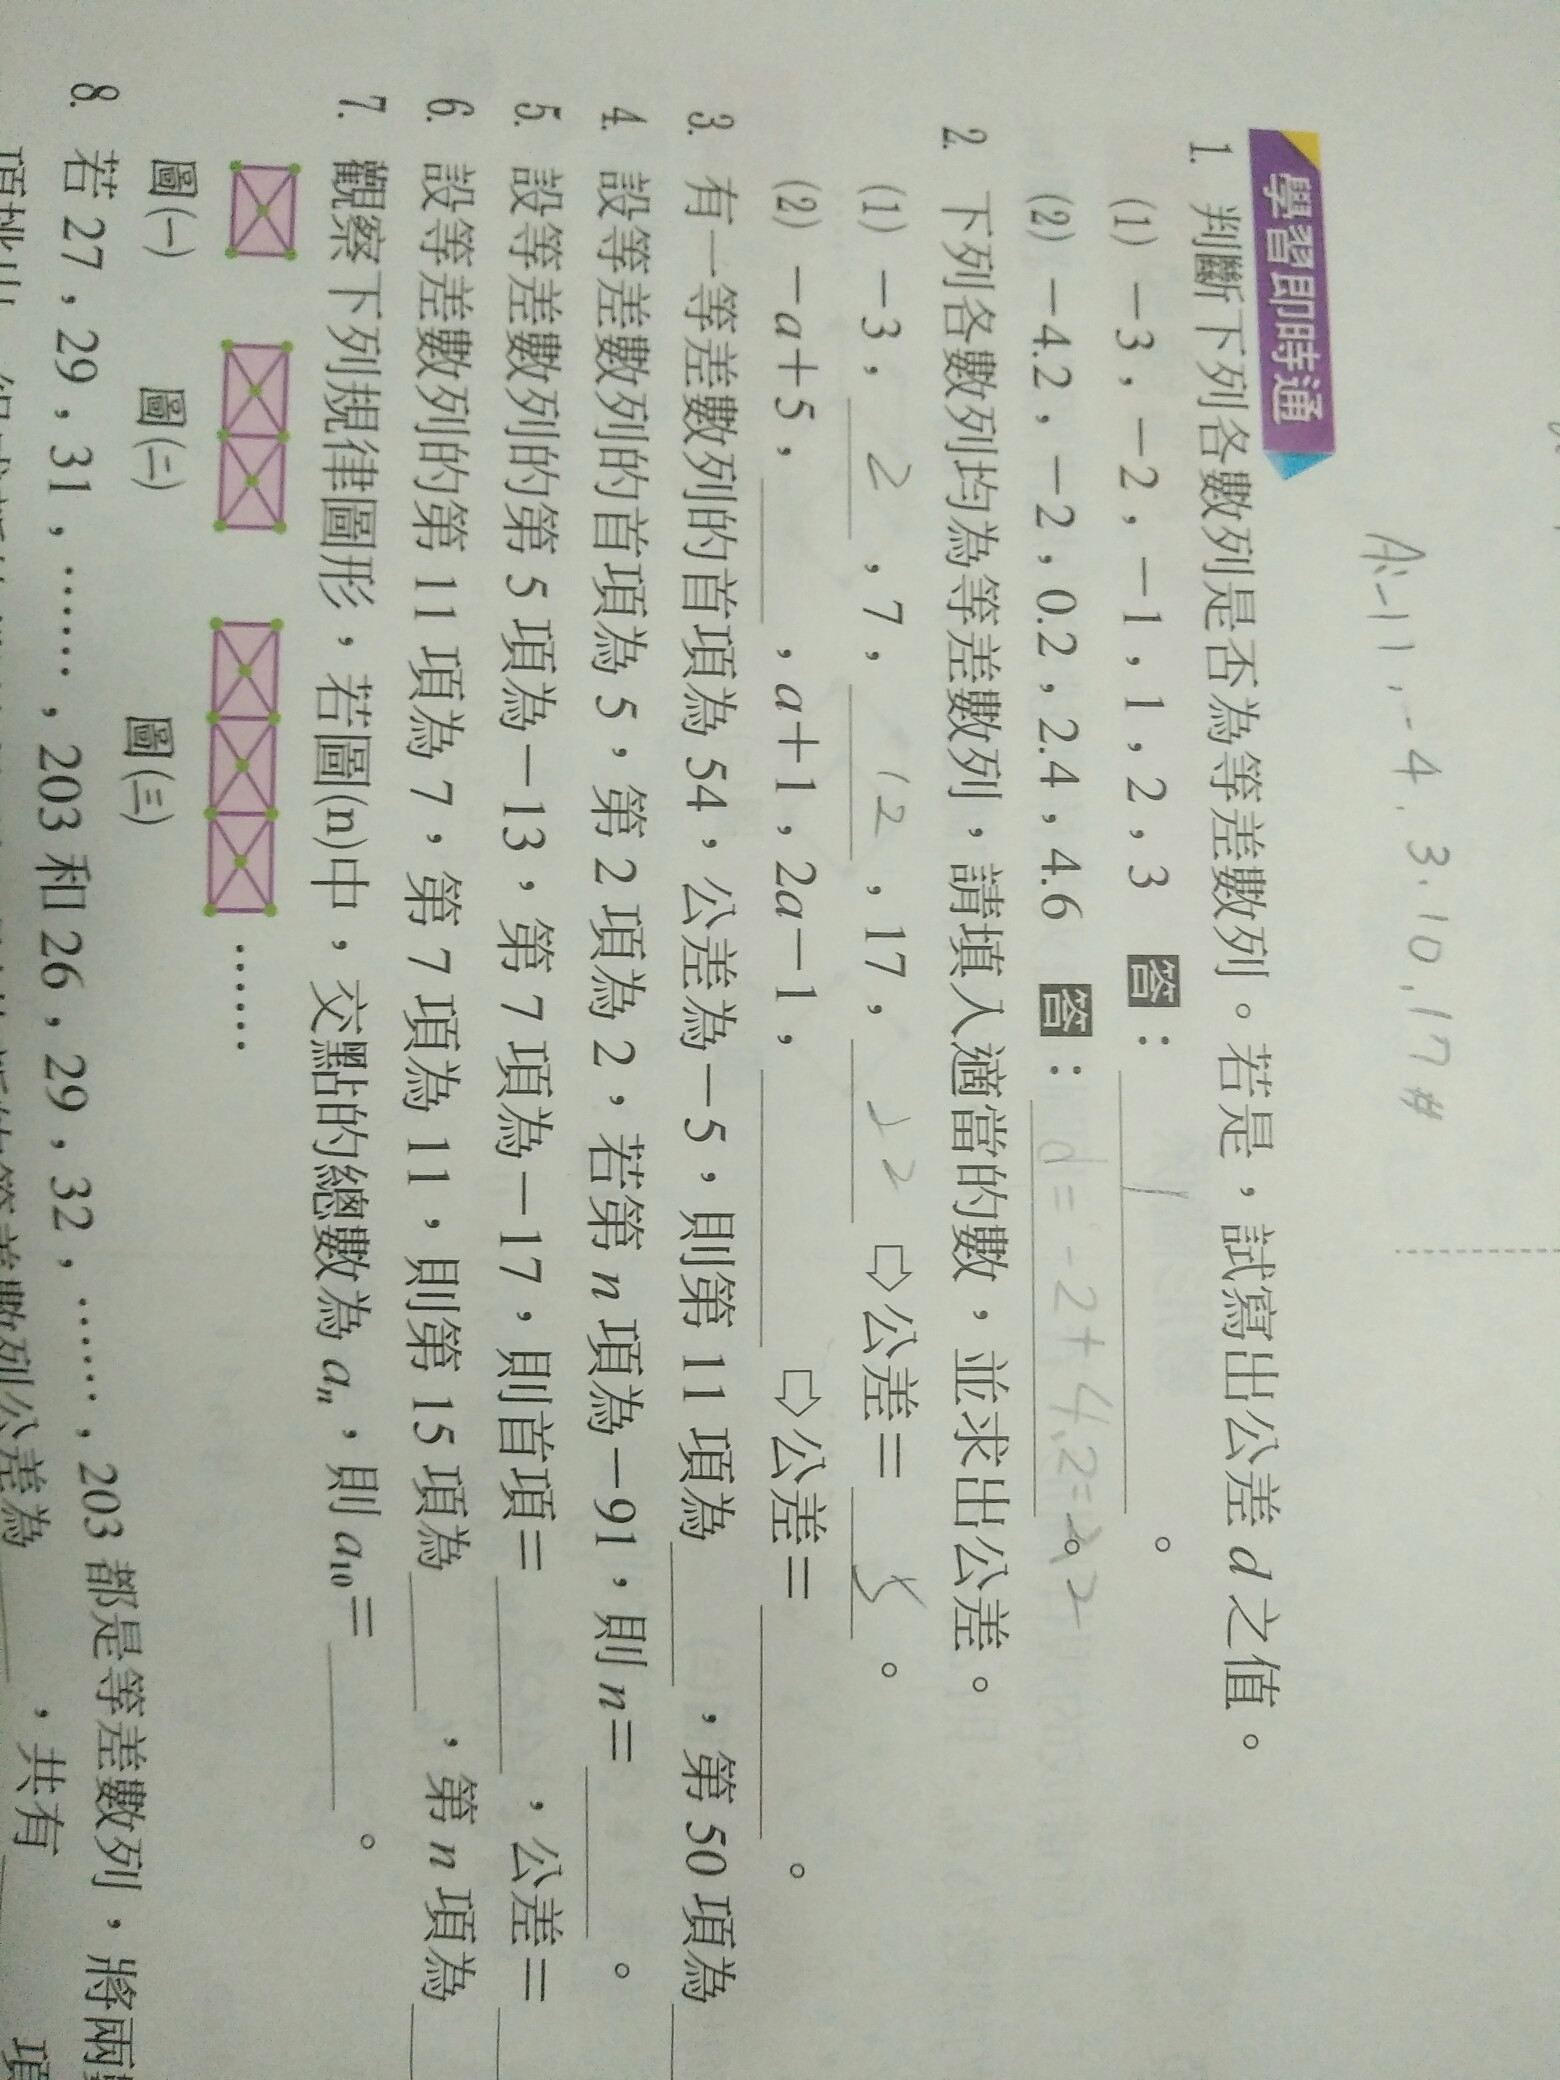 A:-11,-4,3,10,17 #
學習即時通
1. 判斷下列各數列是否為等差數列。若是，試寫出公差 d 之值。
(1) －3，－2，－1，1，2，3 答：
(2) －4.2，－2，0.2，2.4，4.6 答：d=-2+4.2=2.2。
2. 下列各數列均為等差數列，請填入適當的數，並求出公差。
(1) －3，2，7，12，17，22 ⇨公差＝5。
(2) －a＋5，，a＋1，2a－1， ⇨公差＝。
3. 有一等差數列的首項為 54，公差為－5，則第 11 項為，第 50 項為
4. 設等差數列的首項為 5，第 2 項為 2，若第 n 項為－91，則 n＝。
5. 設等差數列的第 5 項為－13，第 7 項為－17，則首項＝，公差＝
6. 設等差數列的第 11 項為 7，第 7 項為 11，則第 15 項為，第 n 項為
7. 觀察下列規律圖形，若圖(n)中，交點的總數為 aₙ，則 a₁₀＝。
……
圖(一) 圖(二) 圖(三)
8. 若 27，29，31，……，203 和 26，29，32，……，203 都是等差數列，將兩
等差數列公差為，共有項